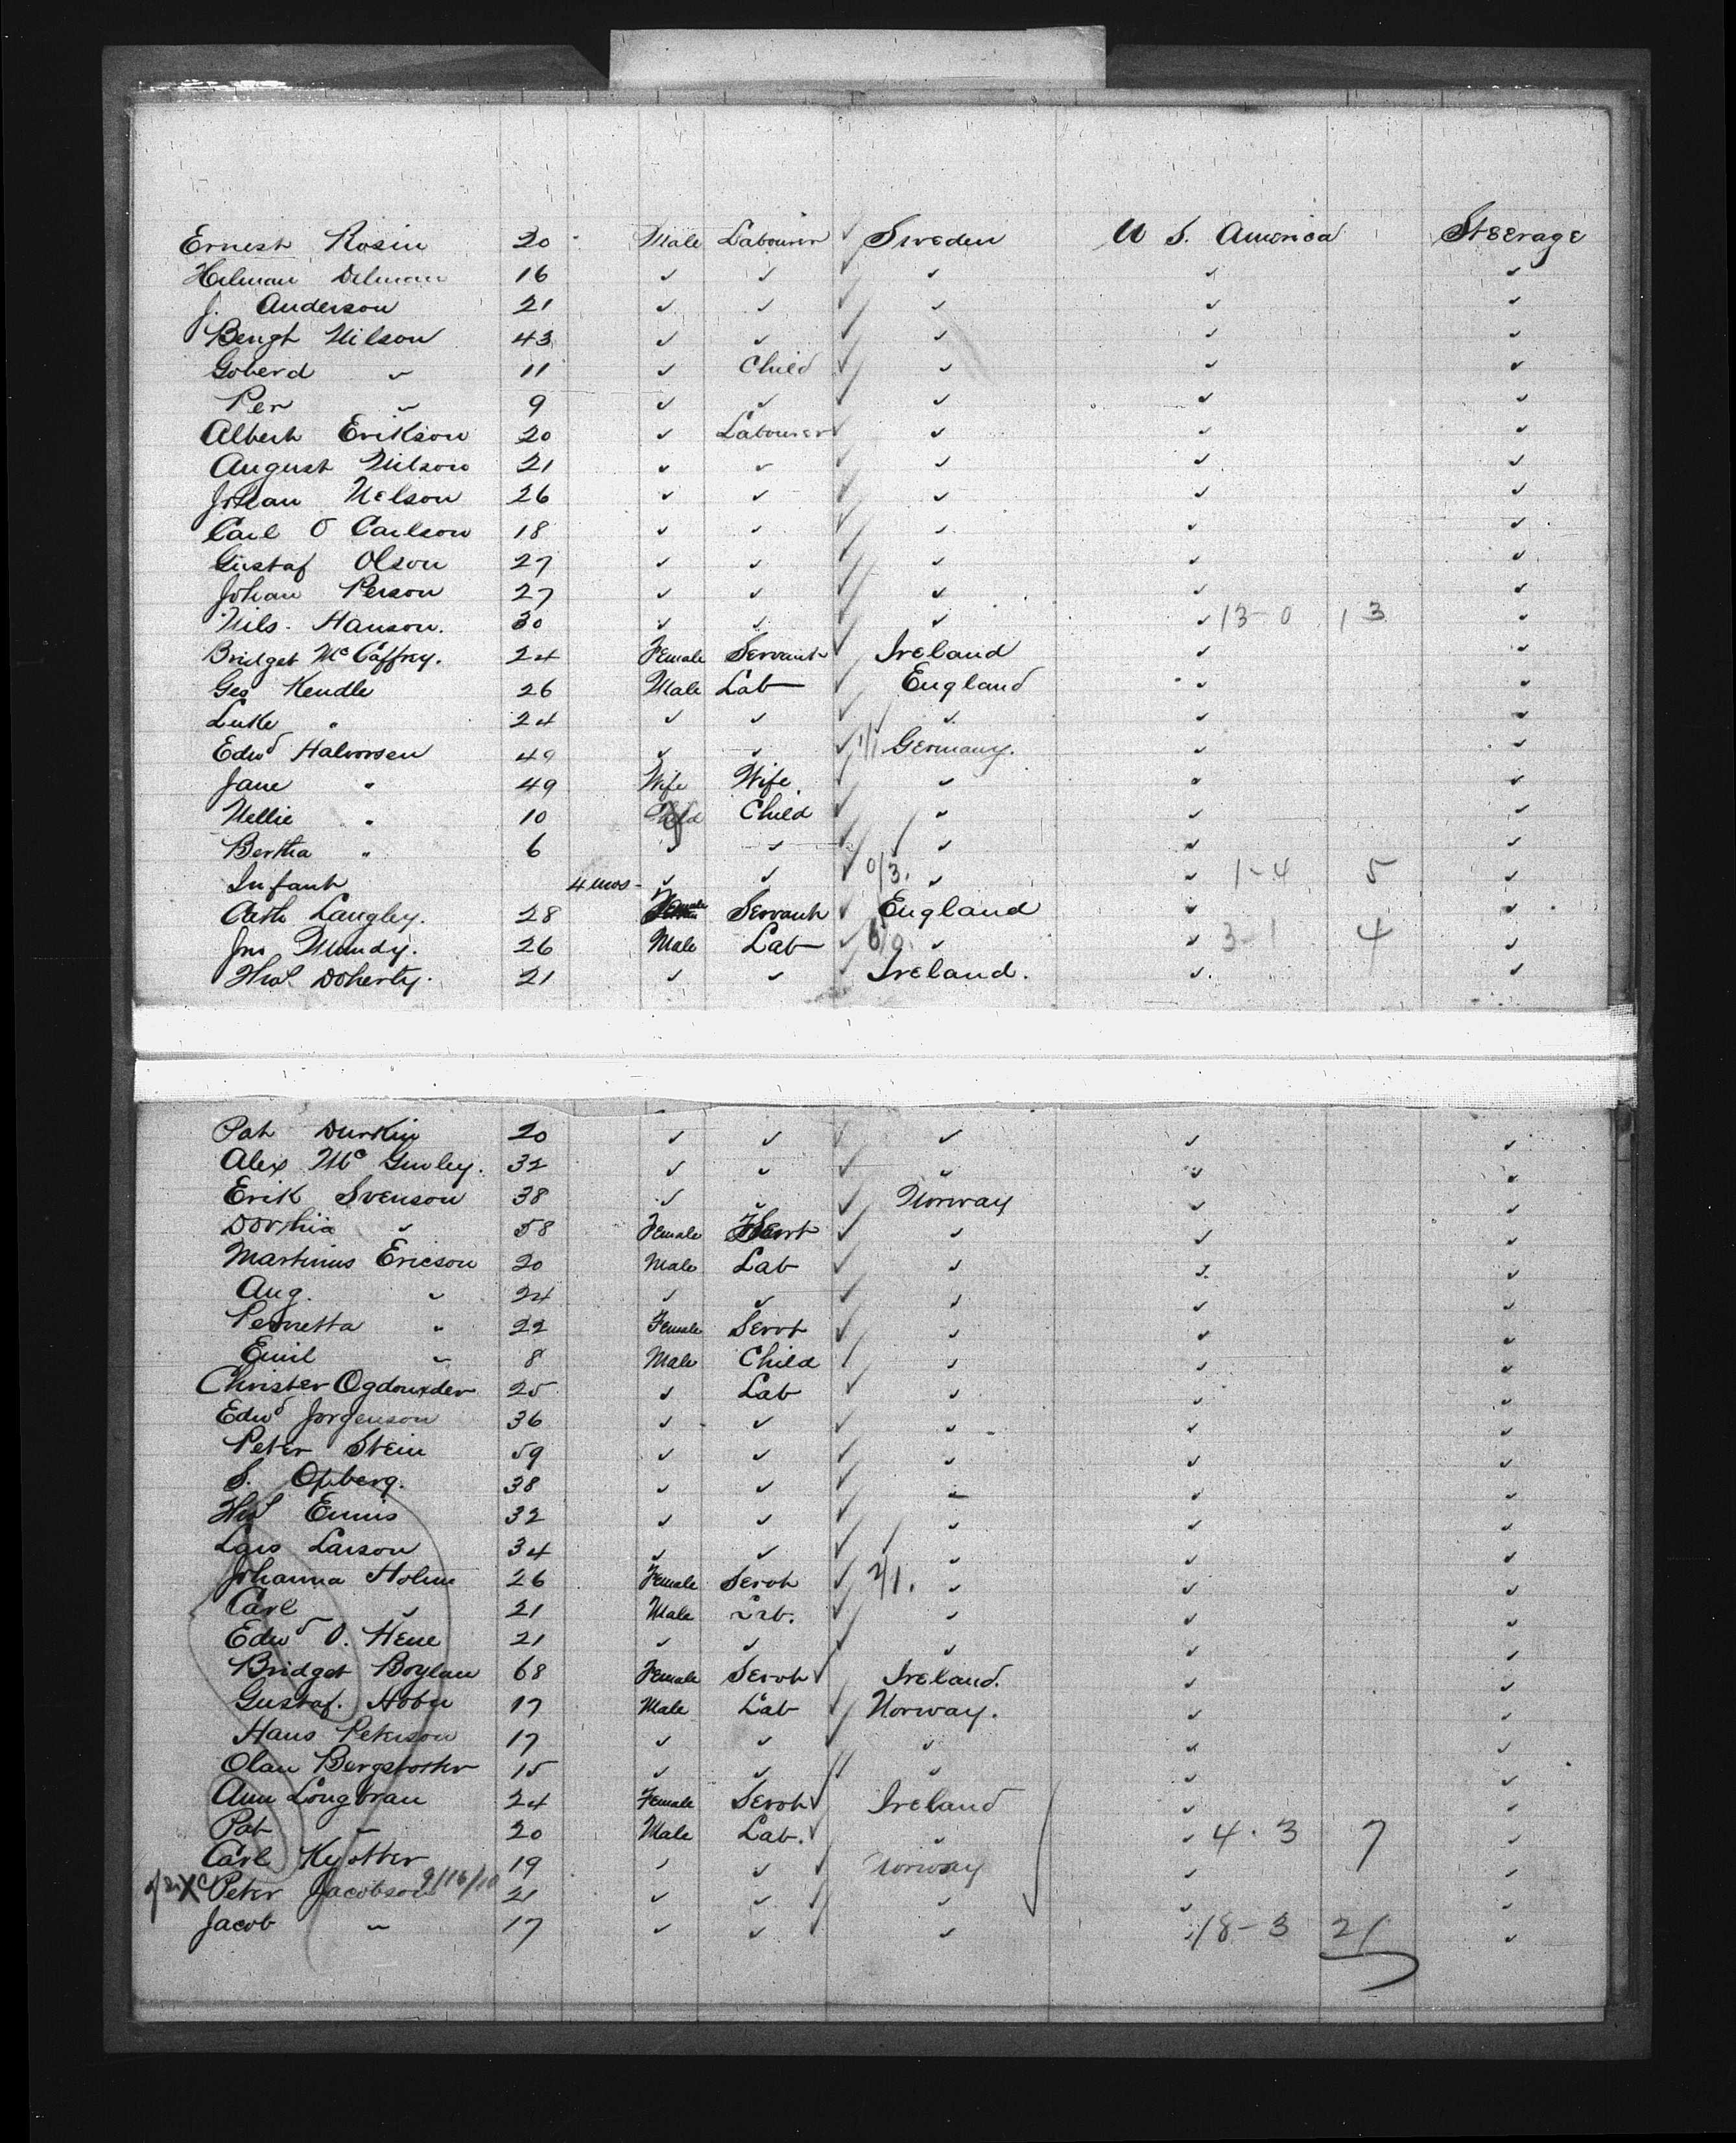 Ernest Rosin 20 Male Labourer ✓ Sweden U S. America Steerage
Helman Delman 16 ✓ ✓ ✓ ✓ ✓ ✓
J. Anderson 21 ✓ ✓ ✓ ✓ ✓ ✓
Bengt Nilson 43 ✓ ✓ ✓ ✓ ✓ ✓
Goberd ✓ 11 ✓ Child ✓ ✓ ✓ ✓
Per ✓ 9 ✓ ✓ ✓ ✓ ✓ ✓
Albert Erikson 20 ✓ Labourer ✓ ✓ ✓ ✓
August Nilson 21 ✓ ✓ ✓ ✓ ✓ ✓
Johan Nelson 26 ✓ ✓ ✓ ✓ ✓ ✓
Carl O Carlson 18 ✓ ✓ ✓ ✓ ✓ ✓
Gustaf Olson 27 ✓ ✓ ✓ ✓ ✓ ✓
Johan Person 27 ✓ ✓ ✓ ✓ ✓ ✓
Nils. Hanson. 30 ✓ ✓ ✓ ✓ ✓ 13-0 13 ✓
Bridget McCaffrey. 24 Female Servant ✓ Ireland ✓ ✓
Geo Kendle 26 Male Lab ✓ England ✓ ✓
Luke " 24 ✓ ✓ ✓ ✓ ✓ ✓
Edwd Halvorsen 49 ✓ ✓ ✓ 1/1 Germany. ✓ ✓
Jane " 49 Wife Wife ✓ ✓ ✓ ✓
Nellie " 10 Child ✓ ✓ ✓ ✓
Bertha " 6 ✓ ✓ ✓ ✓ ✓ ✓
Infant 4 mos - ✓ ✓ ✓ 0/3. ✓ ✓ 1-4 5 ✓
Arth Langley. 28 Female Servant ✓ England ✓ ✓
Jno Mundy. 26 Male Lab ✓ ✓ ✓ 3-1 4 ✓
Thos Doherty. 21 ✓ ✓ ✓ Ireland. ✓ ✓
Pat Durkin 20 ✓ ✓ ✓ ✓ ✓ ✓
Alex Mc 32 ✓ ✓ ✓ ✓ ✓ ✓
Erik Svenson 38 ✓ ✓ ✓ Norway ✓ ✓
Dorthia ✓ 58 Female Servt ✓ ✓ ✓ ✓
Martinus Ericson 20 Male Lab ✓ ✓ ✓ ✓
Aug. ✓ 24 ✓ ✓ ✓ ✓ ✓ ✓
Pernetta " 22 Female Servt ✓ ✓ ✓ ✓
Emil ✓ 8 Male Child ✓ ✓ ✓ ✓
Christer 25 ✓ Lab ✓ ✓ ✓ ✓
Edwd Jorgenson 36 ✓ ✓ ✓ ✓ ✓ ✓
Peter Stein 59 ✓ ✓ ✓ ✓ ✓ ✓
S. Opberg. 38 ✓ ✓ ✓ ✓ ✓ ✓
Thos Ennis 32 ✓ ✓ ✓ ✓ ✓ ✓
Lars Larson 34 ✓ ✓ ✓ ✓ ✓ ✓
Johanna Holm 26 Female Servt ✓ 2/1. ✓ ✓ ✓
Carl ✓ 21 Male Lab. ✓ ✓ ✓ ✓
Edwd O. Hene 21 ✓ ✓ ✓ ✓ ✓ ✓
Bridget Boylan 68 Female Servt ✓ Ireland. ✓ ✓
Gustaf. 17 Male Lab ✓ Norway. ✓ ✓
Hans Peterson 17 ✓ ✓ ✓ ✓ ✓ ✓
Olan 15 ✓ ✓ ✓ ✓ ✓
Ann Longbran 24 Female Servt ✓ Ireland ✓ ✓
Pat ✓ 20 Male Lab. ✓ ✓ ✓ 4.3 7 ✓
Carl 19 ✓ ✓ ✓ Norway ✓ ✓
X Peter Jacobson 9/16/10 21 ✓ ✓ ✓ ✓ ✓ ✓
Jacob ✓ 17 ✓ ✓ ✓ ✓ ✓ 18-3 21 ✓